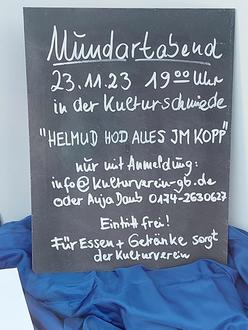 Mundartabend
23.11.23 19⁰⁰ Uhr
in der Kulturschmiede
"HELMUD HOD ALLES IM KOPF"
nur mit Anmeldung:
info@kulturverein-gb.de
oder Anja Daub 0174-2630627
Eintritt frei!
Für Essen + Getränke sorgt
der Kulturverein